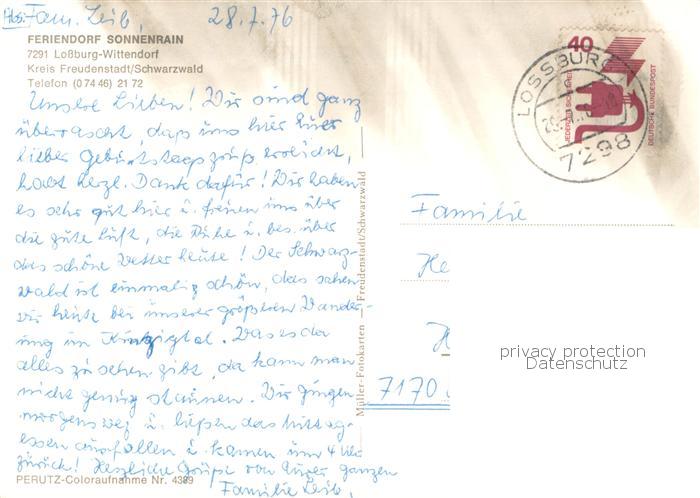 Abs. Fam. Leib, 28.7.76
FERIENDORF SONNENRAIN
7291 Loßburg-Wittendorf
Kreis Freudenstadt/Schwarzwald
Telefon (0 74 46) 21 72
Unsere Lieben! Wir sind ganz
überrascht, daß uns hier Euer
lieber Geburtstagsgruß erreicht,
habt herzl. Dank dafür! Wir haben
es sehr gut hier u. freuen uns über
die gute Luft, die Ruhe u. bes. über
das schöne Wetter heute! Der Schwarz-
wald ist einmalig schön, das sahen
wir heute bei unserer größeren Wander-
ung im Kinzigtal. Was es da
alles zu sehen gibt, da kann man
nicht genug staunen. Wir gingen
morgens weg u. ließen das Mittag-
essen ausfallen u. kamen um 4 Uhr
zurück! Herzliche Grüße von Eurer ganzen
Familie Leib,
PERUTZ-Coloraufnahme Nr. 4389
Müller-Fotokarten — Freudenstadt/Schwarzwald
40
JEDERZEIT SICHERHEIT
DEUTSCHE BUNDESPOST
LOSSBURG
7298
Familie
He
H
7170
privacy protection
Datenschutz